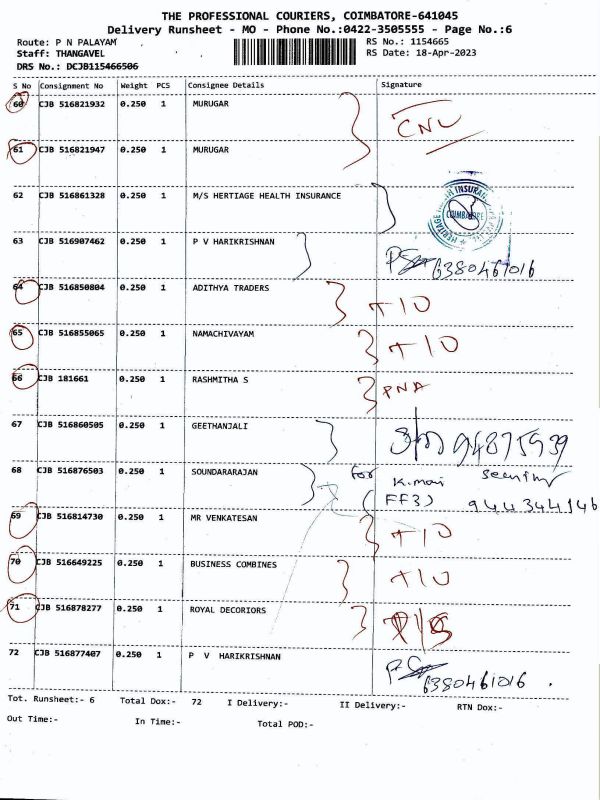 THE PROFESSIONAL COURIERS, COIMBATORE-641045
Delivery Runsheet - MO - Phone No.:0422-3505555 - Page No.:6
Route: P N PALAYAM
RS No.: 1154665
Staff: THANGAVEL
RS Date: 18-Apr-2023
DRS No.: DCJB115466506
S No Consignment No Weight PCS Consignee Details Signature
60 CJB 516821932 0.250 1 MURUGAR
CNL
61 CJB 516821947 0.250 1 MURUGAR
62 CJB 516861328 0.250 1 M/S HERTIAGE HEALTH INSURANCE
COIMBATORE
63 CJB 516907462 0.250 1 P V HARIKRISHNAN
6380461016
64 CJB 516850804 0.250 1 ADITHYA TRADERS
65 CJB 516855065 0.250 1 NAMACHIVAYAM
66 CJB 181661 0.250 1 RASHMITHA S PNA
67 CJB 516860505 0.250 1 GEETHANJALI
68 CJB 516876503 0.250 1 SOUNDARARAJAN for
FF3)
69 CJB 516814730 0.250 1 MR VENKATESAN
70 CJB 516649225 0.250 1 BUSINESS COMBINES
71 CJB 516878277 0.250 1 ROYAL DECORIORS
72 CJB 516877407 0.250 1 P V HARIKRISHNAN
6380461016
Tot. Runsheet:- 6 Total Dox:- 72 I Delivery:- II Delivery:- RTN Dox:-
Out Time:- In Time:- Total POD:-